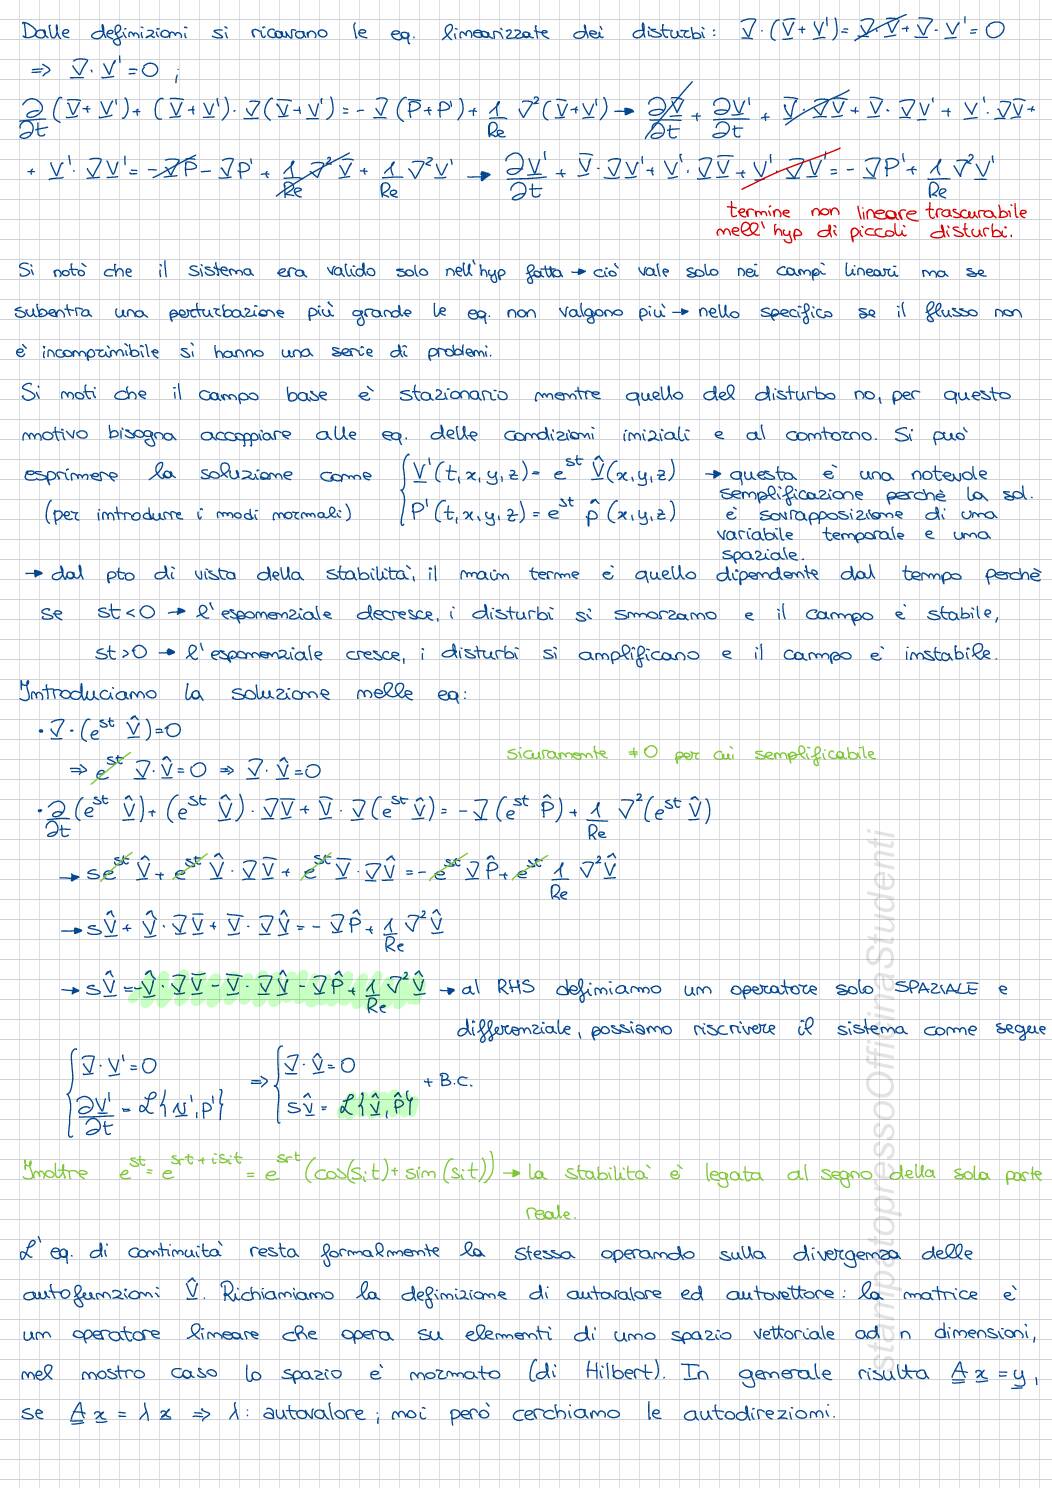 Dalle definizioni si ricavano le eq. linearizzate dei disturbi: ∇·(V̅+V')= ∇·V̅+∇·V'=0
⇒ ∇·V'=0 ;
∂/∂t (V̅+V')+(V̅+V')·∇(V̅+V')=-∇(P̅+P')+ 1/Re ∇²(V̅+V') → ∂V̅/∂t + ∂V'/∂t + V̅·∇V̅+V̅·∇V'+V'·∇V̅+
+ V'·∇V'=-∇P̅-∇P'+ 1/Re ∇²V̅+ 1/Re ∇²V' → ∂V'/∂t + V̅·∇V'+V'·∇V̅+V'·∇V'=-∇P'+ 1/Re ∇²V'
termine non lineare trascurabile
nell'hyp di piccoli disturbi.
Si notò che il sistema era valido solo nell'hyp fatta → ciò vale solo nei campi lineari ma se
subentra una perturbazione più grande le eq. non valgono più → nello specifico se il flusso non
è incomprimibile si hanno una serie di problemi.
Si noti che il campo base è stazionario mentre quello del disturbo no, per questo
motivo bisogna accoppiare alle eq. delle condizioni iniziali e al contorno. Si può
esprimere la soluzione come { V'(t,x,y,z)= e^st V̂(x,y,z) → questa è una notevole
semplificazione perchè la sol.
(per introdurre i modi normali) P'(t,x,y,z)= e^st p̂(x,y,z) è sovrapposizione di una
variabile temporale e una
spaziale.
→ dal pto di vista della stabilità, il main terme è quello dipendente dal tempo perchè
se st<0 → l'esponenziale decresce, i disturbi si smorzano e il campo è stabile,
st>0 → l'esponenziale cresce, i disturbi si amplificano e il campo è instabile.
Introduciamo la soluzione nelle eq:
·∇·(e^st V̂)=0
sicuramente ≠0 per cui semplificabile
⇒ e^st ∇·V̂=0 ⇒ ∇·V̂=0
· ∂/∂t (e^st V̂)+(e^st V̂)·∇V̅+V̅·∇(e^st V̂)=-∇(e^st P̂)+ 1/Re ∇²(e^st V̂)
→ se^st V̂+ e^st V̂·∇V̅+ e^st V̅·∇V̂=-e^st ∇P̂+e^st 1/Re ∇²V̂
→ sV̂+V̂·∇V̅+V̅·∇V̂=-∇P̂+ 1/Re ∇²V̂
→ sV̂=-V̂·∇V̅-V̅·∇V̂-∇P̂+ 1/Re ∇²V̂ → al RHS definiamo un operatore solo SPAZIALE e
differenziale, possiamo riscrivere il sistema come segue
{ ∇·V'=0 ⇒ { ∇·V̂=0 + B.C.
∂V'/∂t = ℒ{v',P'} sv̂ = ℒ{v̂,P̂}
Inoltre e^st = e^(srt+isit) = e^srt (cos(sit)+sin(sit)) → la stabilità è legata al segno della sola parte
reale.
L'eq. di continuità resta formalmente la stessa operando sulla divergenza delle
autofunzioni V̂. Richiamiamo la definizione di autovalore ed autovettore: la matrice è
un operatore lineare che opera su elementi di uno spazio vettoriale ad n dimensioni,
nel nostro caso lo spazio è normato (di Hilbert). In generale risulta A x = y,
se A x = λ x ⇒ λ: autovalore; noi però cerchiamo le autodirezioni.
stampatopressoOfficinaStudenti